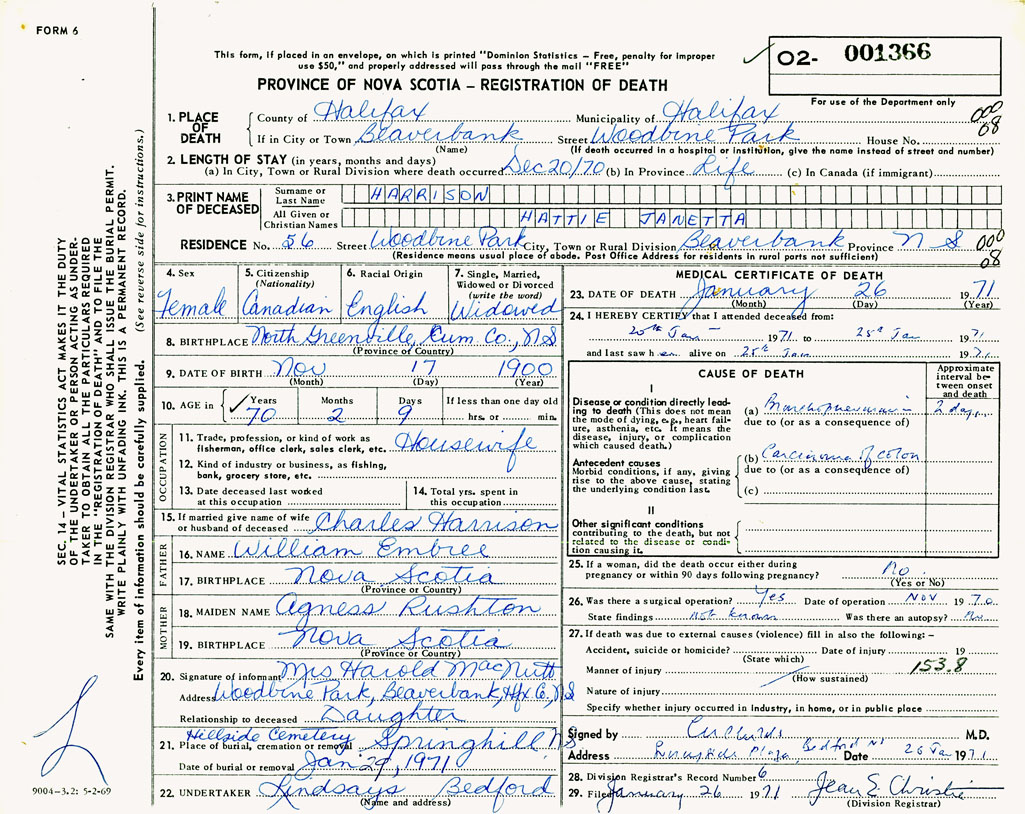 FORM 6
This form, if placed in an envelope, on which is printed "Dominion Statistics – Free, penalty for improper
use $50," and properly addressed will pass through the mail "FREE"
PROVINCE OF NOVA SCOTIA – REGISTRATION OF DEATH
O2- 001366
For use of the Department only
000
08
SEC. 14 – VITAL STATISTICS ACT MAKES IT THE DUTY
OF THE UNDERTAKER OR PERSON ACTING AS UNDER-
TAKER TO OBTAIN ALL THE PARTICULARS REQUIRED
IN THE "REGISTRATION OF DEATH" AND TO FILE THE
SAME WITH THE DIVISION REGISTRAR WHO SHALL ISSUE THE BURIAL PERMIT.
WRITE PLAINLY WITH UNFADING INK. THIS IS A PERMANENT RECORD.
Every item of information should be carefully supplied. (See reverse side for instructions.)
1. PLACE OF DEATH
County of Halifax Municipality of Halifax
If in City or Town Beaverbank Street Woodbine Park House No.
(Name) (If death occurred in a hospital or institution, give the name instead of street and number)
2. LENGTH OF STAY (in years, months and days)
(a) In City, Town or Rural Division where death occurred Dec 20/70 (b) In Province Life (c) In Canada (if immigrant)
3. PRINT NAME OF DECEASED
Surname or Last Name HARRISON
All Given or Christian Names HATTIE JANETTA
RESIDENCE No. 56 Street Woodbine Park City, Town or Rural Division Beaverbank Province N S 000
08
(Residence means usual place of abode. Post Office Address for residents in rural parts not sufficient)
4. Sex Female
5. Citizenship (Nationality) Canadian
6. Racial Origin English
7. Single, Married, Widowed or Divorced (write the word) Widowed
8. BIRTHPLACE North Greenville, Cum. Co., N S
(Province of Country)
9. DATE OF BIRTH Nov 17 1900
(Month) (Day) (Year)
10. AGE in Years 70 Months 2 Days 9 If less than one day old hrs. or min.
OCCUPATION
11. Trade, profession, or kind of work as fisherman, office clerk, sales clerk, etc. Housewife
12. Kind of industry or business, as fishing, bank, grocery store, etc.
13. Date deceased last worked at this occupation
14. Total yrs. spent in this occupation
15. If married give name of wife or husband of deceased Charles Harrison
FATHER
16. NAME William Embree
17. BIRTHPLACE Nova Scotia
(Province or Country)
MOTHER
18. MAIDEN NAME Agness Rushton
19. BIRTHPLACE Nova Scotia
(Province or Country)
20. Signature of informant Mrs Harold MacNutt
Address Woodbine Park, Beaverbank, Hfx Co., N S
Relationship to deceased Daughter
Hillside Cemetery
21. Place of burial, cremation or removal Springhill N S
Date of burial or removal Jan 29, 1971
22. UNDERTAKER Lindsays Bedford
(Name and address)
9004-3.2: 5-2-69
MEDICAL CERTIFICATE OF DEATH
23. DATE OF DEATH January 26 1971
(Month) (Day) (Year)
24. I HEREBY CERTIFY that I attended deceased from:
20th Jan 1971 to 25th Jan 1971
and last saw her alive on 25th Jan 1971
CAUSE OF DEATH
Approximate interval between onset and death
I
Disease or condition directly leading to death (This does not mean the mode of dying, e.g., heart failure, asthenia, etc. It means the disease, injury, or complication which caused death.)
(a) Bronchopneumonia 2 days
due to (or as a consequence of)
Antecedent causes
Morbid conditions, if any, giving rise to the above cause, stating the underlying condition last.
(b) Carcinoma of colon
due to (or as a consequence of)
(c)
II
Other significant conditions
contributing to the death, but not related to the disease or condition causing it.
25. If a woman, did the death occur either during pregnancy or within 90 days following pregnancy? No
(Yes or No)
26. Was there a surgical operation? Yes Date of operation Nov 1970
State findings not known Was there an autopsy? No
27. If death was due to external causes (violence) fill in also the following: –
Accident, suicide or homicide? Date of injury 19
(State which)
Manner of injury 153.8
(How sustained)
Nature of injury
Specify whether injury occurred in industry, in home, or in public place
Signed by M.D.
Address Plaza Bedford NS Date 26 Ja 1971
28. Division Registrar's Record Number 6
29. Filed January 26 1971 Jean E. Christie
(Division Registrar)